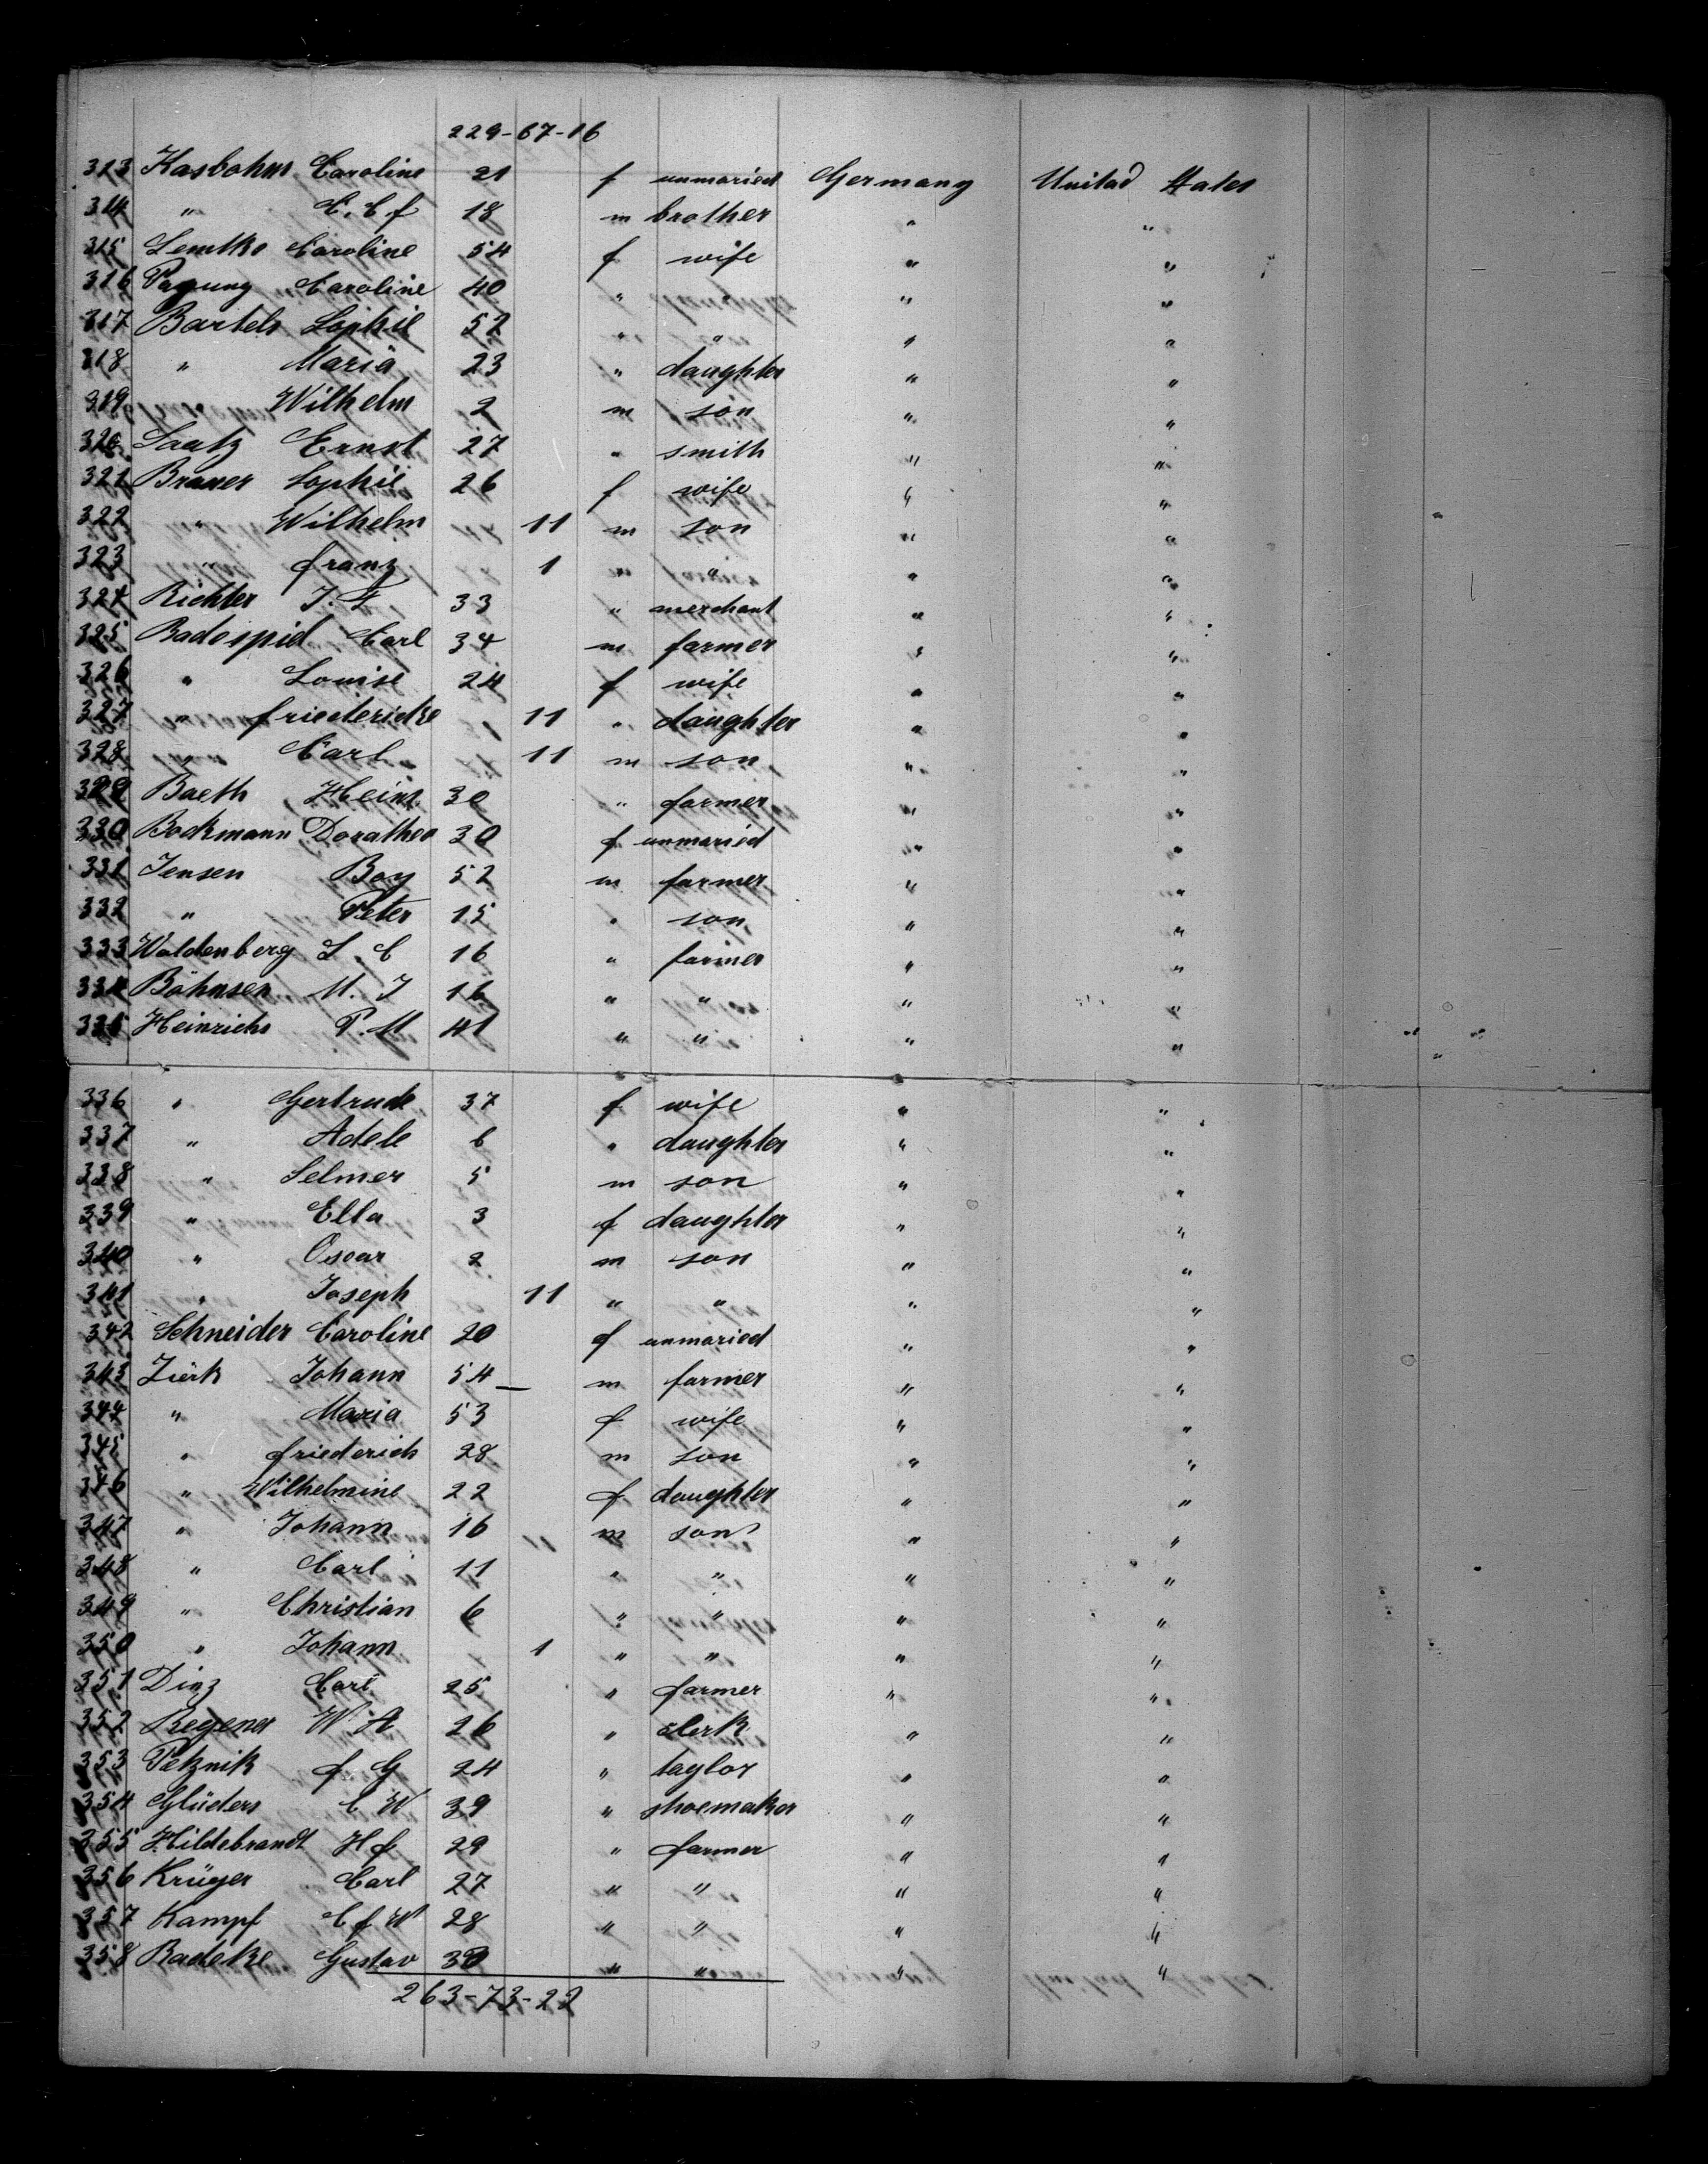 229-67-16
313 Kasbohm Caroline 21 f unmaried Germany United States
314 " C. C f 18 m brother " "
315 Lemtko Caroline 54 f wife " "
316 Pagung Caroline 40 " " "
317 Bartels Sophie 52 " " " "
318 " Maria 23 " daughter " "
319 Wilhelm 2 m son " "
320 Saatz Ernst 27 " smith " "
321 Braner Sophie 26 f wife " "
322 " Wilhelm 11 m son " "
323 " franz 1 " " " "
324 Richter J. F 33 " merchant " "
325 Badospiel Carl 34 m farmer " "
326 " Louise 24 f wife " "
327 " friedericke 11 " daughter " "
328 " Carl 11 m son " "
329 Baeth Heinr. 30 " farmer " "
330 Bockmann Dorathea 30 f unmaried " "
331 Jensen Boy 52 m farmer " "
332 " Peter 15 " son " "
333 Woldenberg L. C 16 " farmer " "
334 Böhnsen M. J 16 " " " "
335 Heinrichs P. M 41 " " " "
336 " Gertrude 37 f wife " "
337 " Adele 6 " daughter " "
338 " Selmer 5 m son " "
339 " Ella 3 f daughter " "
340 " Oscar 2 m son " "
341 " Joseph 11 " " " "
342 Schneider Caroline 20 f unmaried " "
343 Zürk Johann 54 m farmer " "
344 " Maria 53 f wife " "
345 " friederich 28 m son " "
346 " Wilhelmine 22 f daughter " "
347 " Johann 16 m son " "
348 " Carl 11 " " " "
349 " Christian 6 " " " "
350 " Johann 1 " " " "
351 Dinz Carl 25 " farmer " "
352 Regener W A 26 " clerk " "
353 Petznik f G 24 " taylor " "
354 Glüders C W 39 " shoemaker " "
355 Hildebrandt H f 29 " farmer " "
356 Krüger Carl 27 " " " "
357 Kampf C f W 28 " " " "
358 Radeke Gustav 30 " " " "
263-73-22